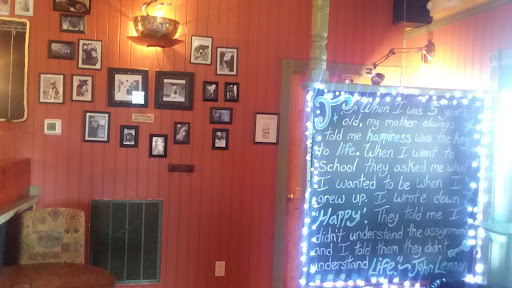 "When I was 5 y
old, my mother always
told me happiness was the key
to life. When I went to
School they asked me what
I wanted to be when I
grew up. I wrote down
"Happy". They told me I
didn't understand the assignment
and I told them they didn't
understand Life."~ John Lennon